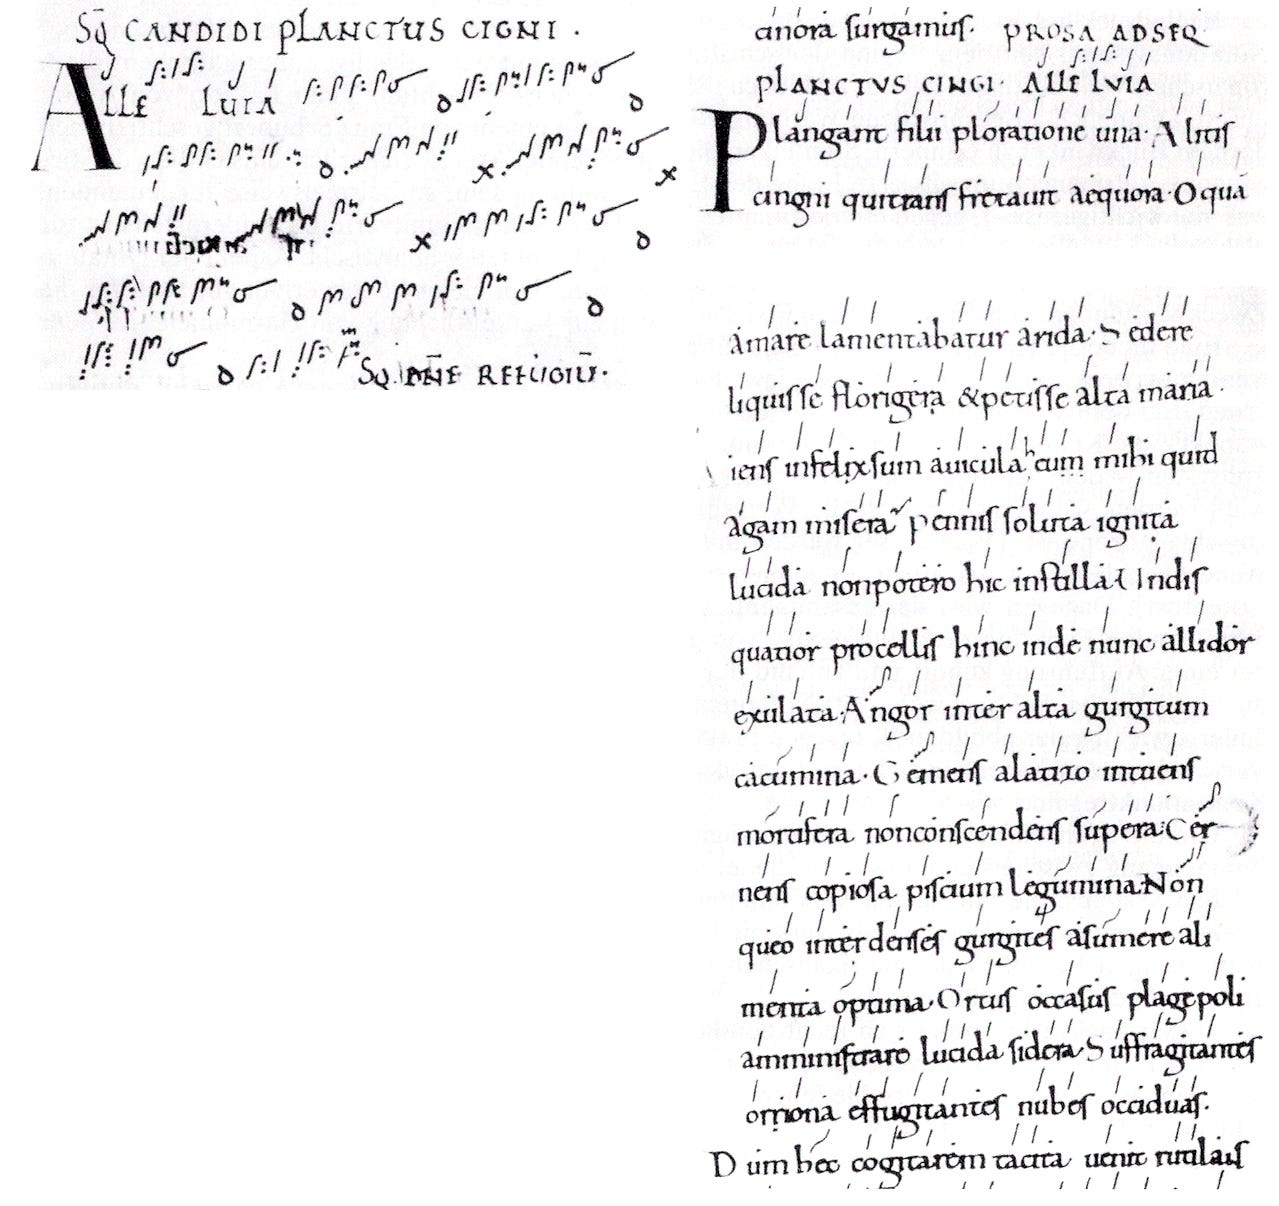 SQ̄ CANDIDI PLANCTUS CIGNI .
ALLE LUIA
SQ. REFUGIŪ.
canora surgamus. PROSA AD SEQ̄
PLANCTVS CINGI. ALLELVIA
Plangant filii ploratione una. Alitis
cingni qui trans fretauit aequora. O quā
amare lamentabatur arida. Se dere
liquisse florigera & petisse alta maria.
iens infelix sum auicula heu mihi quid
agam misera pennis soluta ignita
lucida non potero hic instilla. Undis
quatior procellis hinc inde nunc allidor
exulata. Angor inter alta gurgitum
cacumina. Gemens alatizo intuens
mortifera non conscendens supera. Cer
nens copiosa piscium legumina. Non
queo inter denses gurgites asumere ali
menta optima. Ortus occasus plage poli
amministrare lucida sidera. Suffragitantes
oriiona effugitantes nubes occiduas.
Dum hec cogitarem tacita uenit rutilais